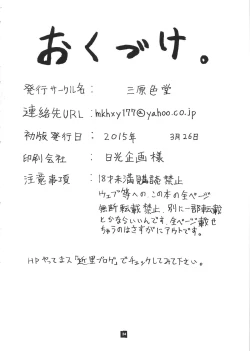 おくづけ。
発行サークル名: 三原色堂
連絡先URL: mkhxy177@yahoo.co.jp
初版発行日: 2015年 3月26日
印刷会社: 日光企画様
注意事項: 18才未満購読禁止
ウェブ等への この本の全ページ
無断転載禁止、別に一部転載
とかならいいんです。全ページ載せ
ちゃうのはさすがにアウトです。
HPやってます「近里ブログ」でチェックしてみて下さい。